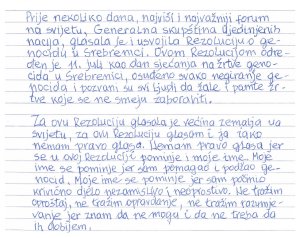 Prije nekoliko dana, najviši i najvažniji forum
na svijetu, Generalna skupština Ujedinjenih
nacija, glasala je i usvojila Rezoluciju o ge-
nocidu u Srebrenici. Ovom Rezolucijom odre-
đen je 11. juli kao dan sjećanja na žrtve geno-
cida u Srebrenici, osuđeno svako negiranje ge-
nocida i pozvani su svi ljudi da žale i pamte žr-
tve koje se ne smeju zaboraviti.
Za ovu Rezoluciju glasala je većina zemalja u
svijetu, za ovu Rezoluciju glasam i ja iako
nemam pravo glasa. Nemam pravo glasa jer
se u ovoj Rezoluciji pominje i moje ime. Moje
ime se pominje jer sam pomagao i podžao ge-
nocid. Moje ime se pominje jer sam počinio
krivično djelo nezamislivo i neoprostivo. Ne tražim
oproštaj, ne tražim opravdanje, ne tražim razumije-
vanje jer znam da ne mogu i da ne treba da
ih dobijem.